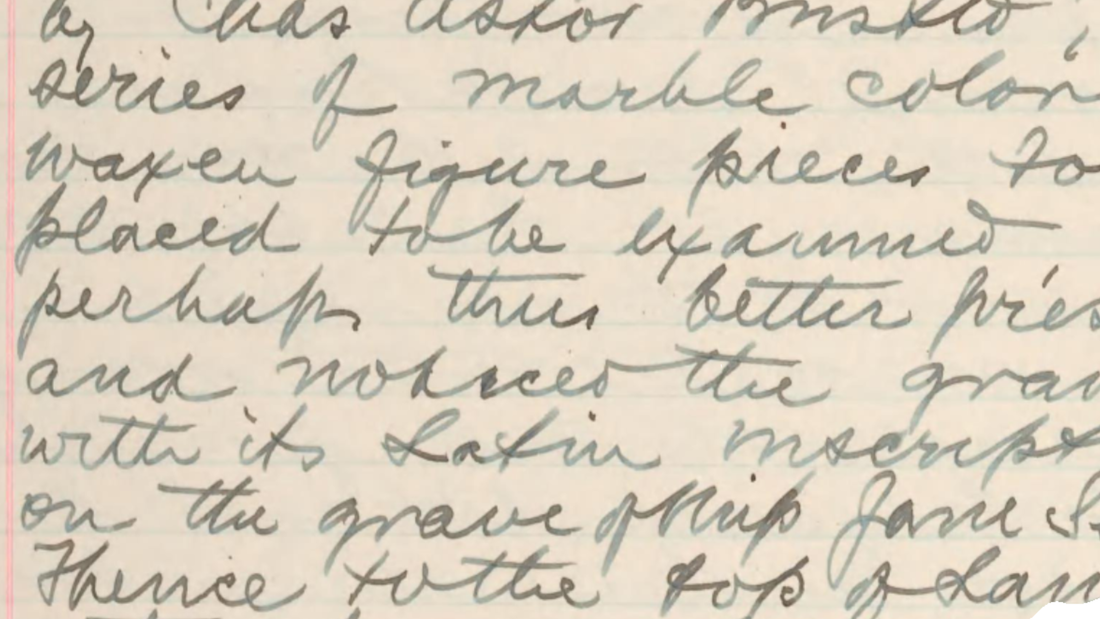 by Chas Astor Bristed,
series of marble color
waxen figure pieces to
placed to be examined
perhaps thus better pres
and noticed the grav
with its Latin inscript
on the grave of Miss Jane S.
Thence to the top of Lan